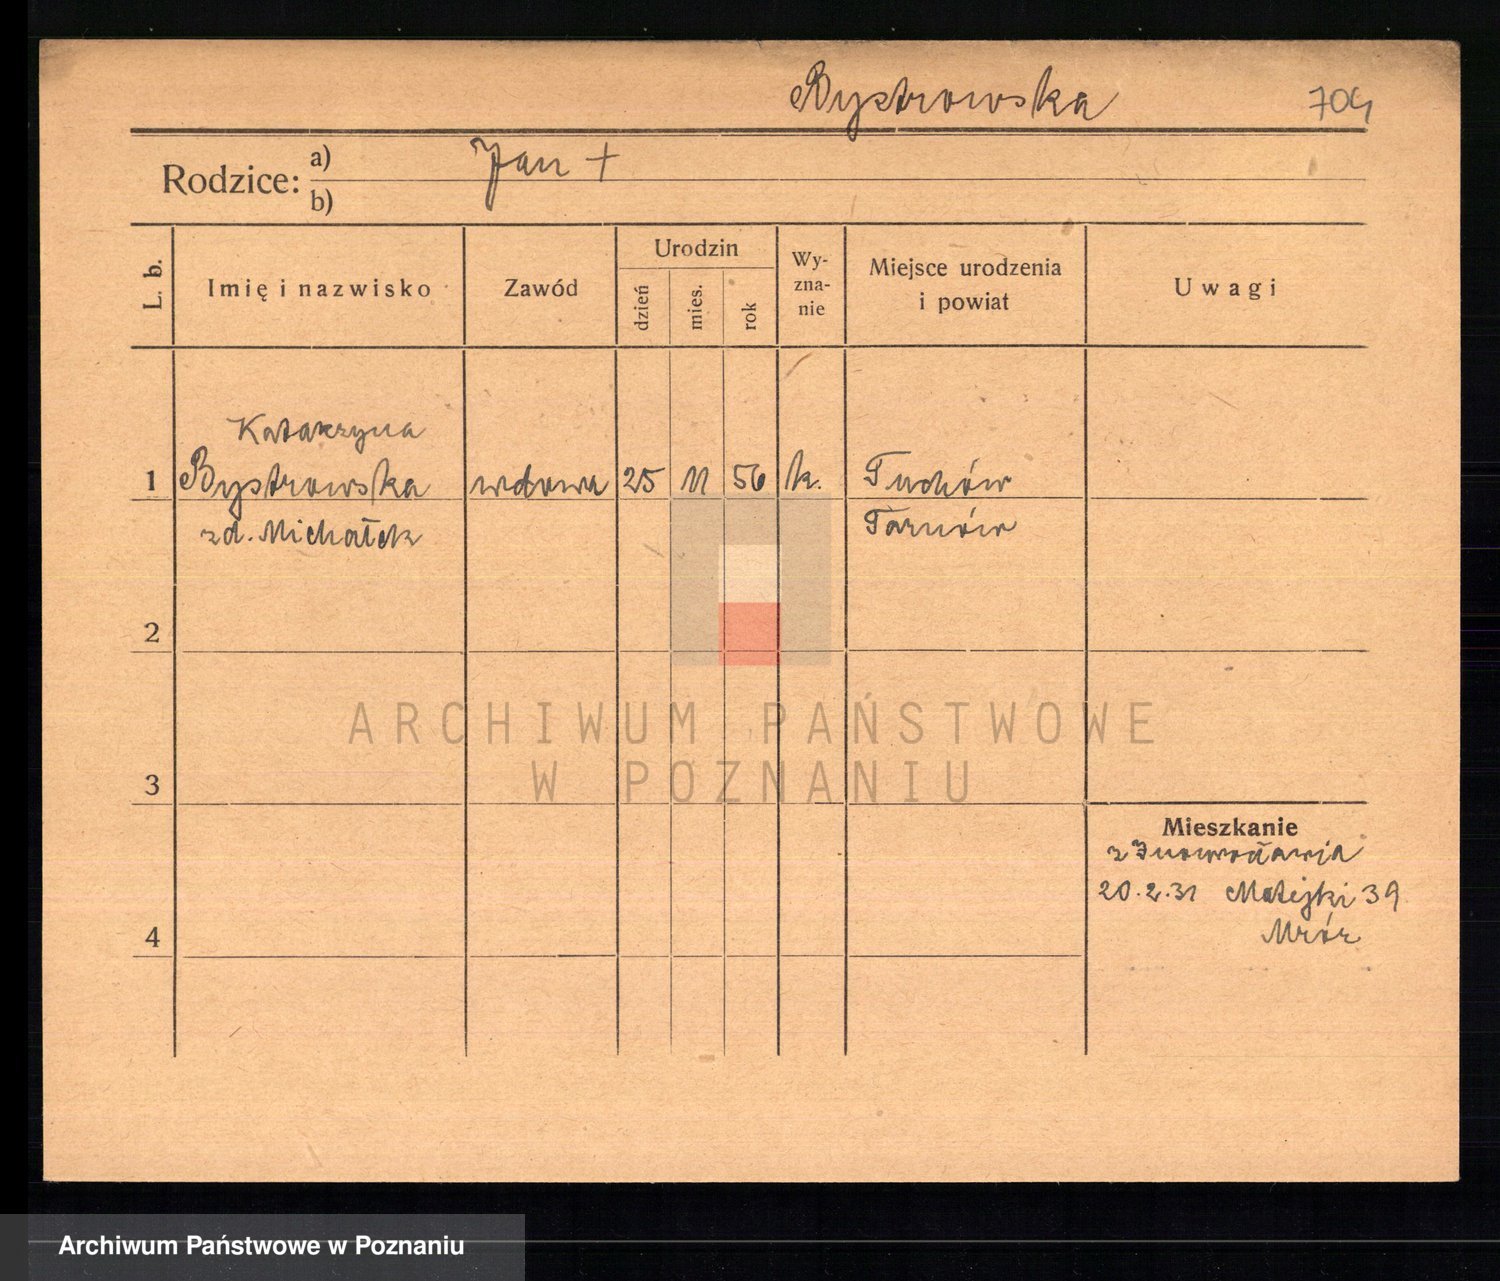 Bystrowska 704
Rodzice: a) Jan +
b)
L. b. Imię i nazwisko Zawód Urodzin dzień mies. rok Wy-zna-nie Miejsce urodzenia i powiat Uwagi
Katarzyna
1 Bystrowska wdowa 25 11 56 k. Tuchów
zd. Michałek Tarnów
2
ARCHIWUM PAŃSTWOWE
W POZNANIU
3
Mieszkanie
z Inowrocławia
20.2.31 Matejki 39
Mróz
4
Archiwum Państwowe w Poznaniu